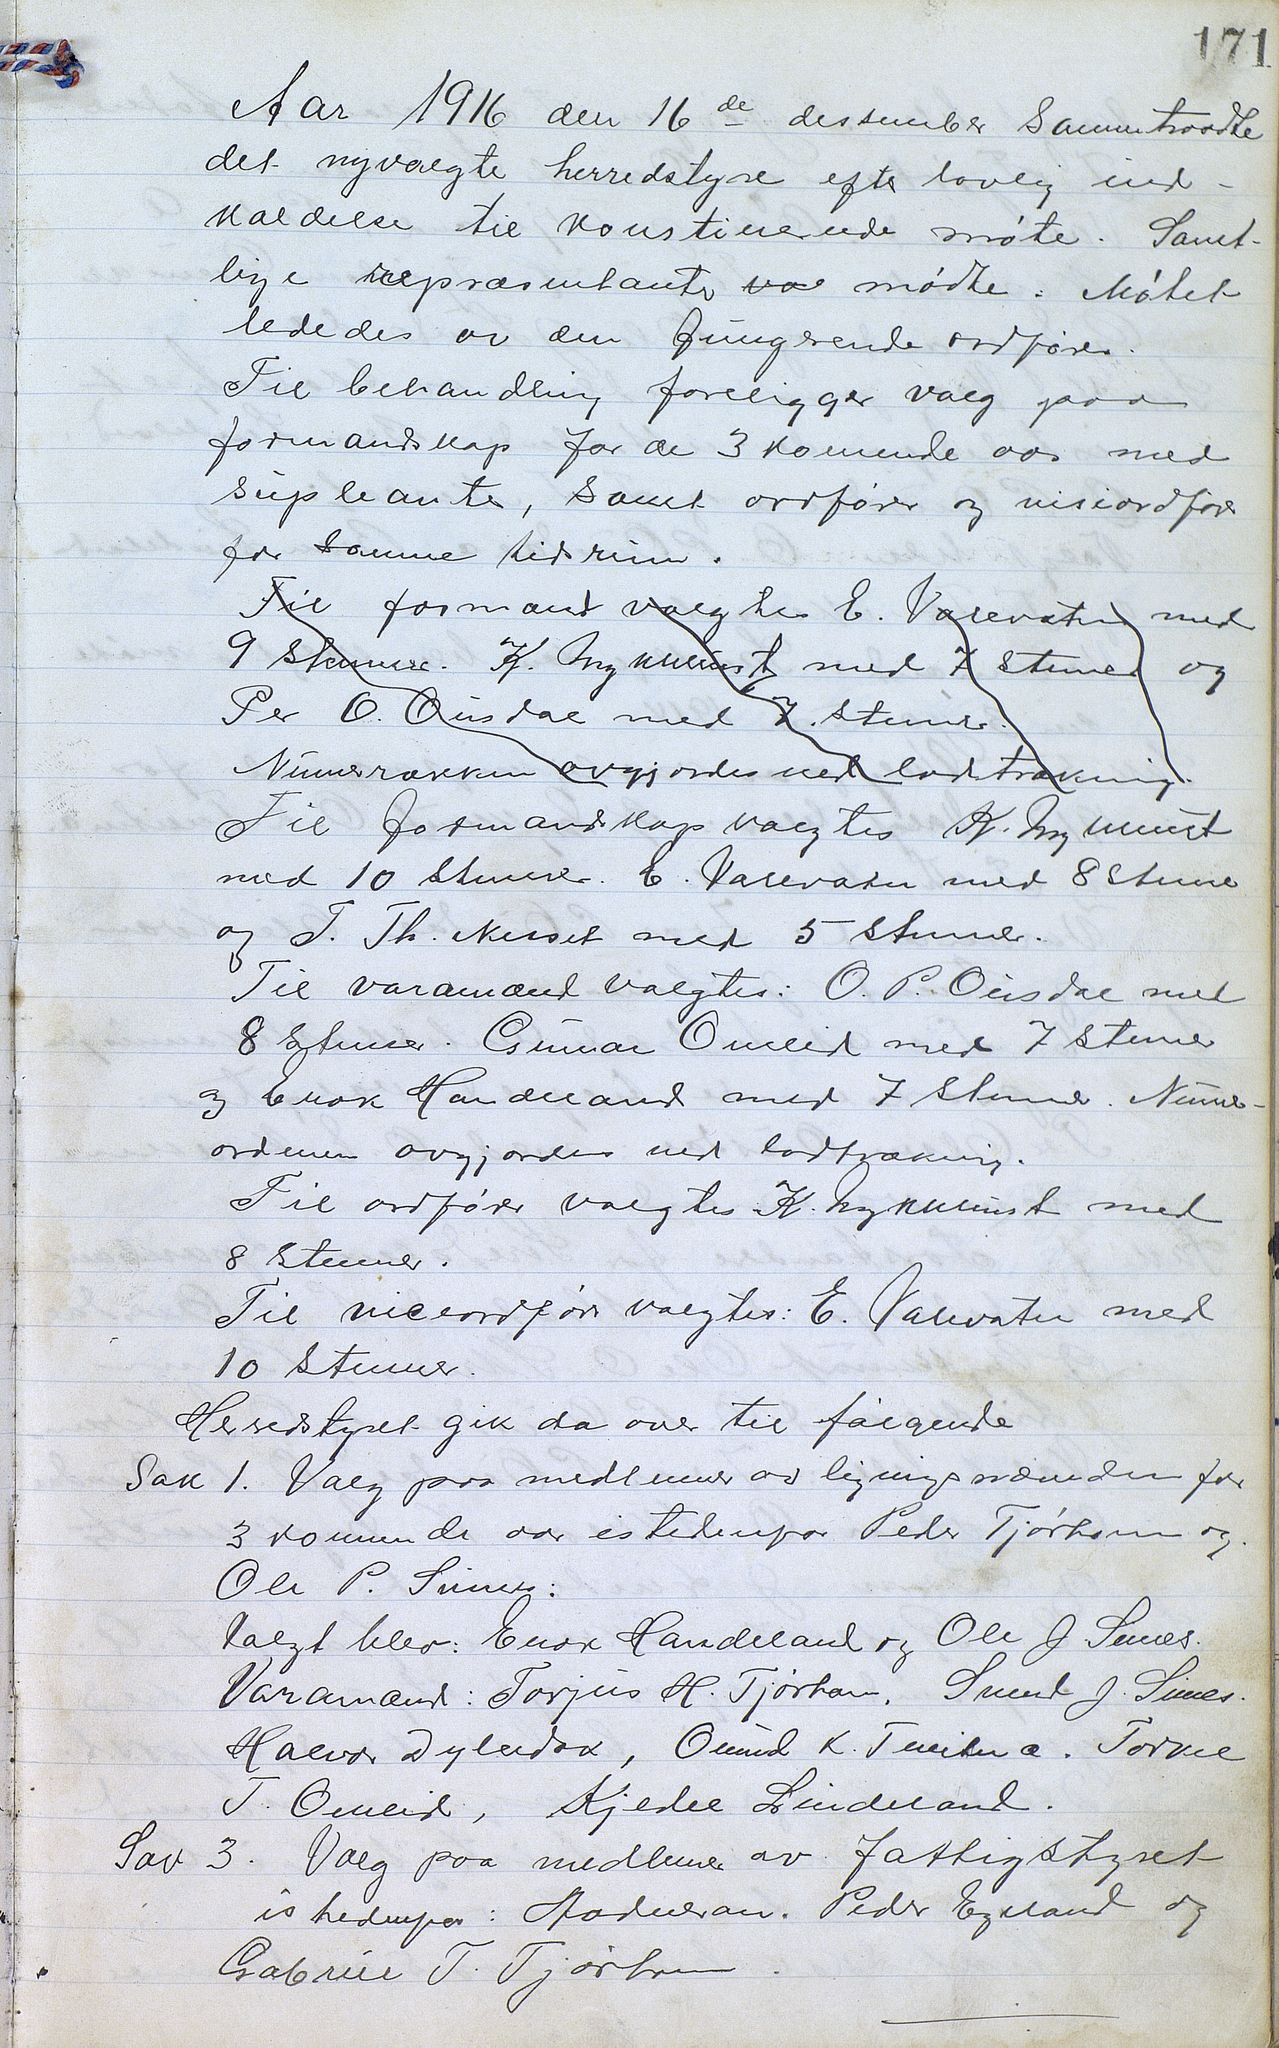 171
Aar 1916 den 16de dessember Sammentraadte
det nyvalgte herredstyre efter lovlig ind-
kaldelse til konstituerende møte. Samt-
lige repræsentanter var mødte. Møtet
lededes av den fungerende ordfører.
Til behandling foreligger valg paa
formandskap for de 3 komende aar med
supleanter, samt ordfører og viseordfører
for samme tidsrum.
Til formand valgtes E. Valevatn med
9 stemmer. K. Nykmunst med 7 stemer og
Per O. Ousdal med 7. stemer.
Numerrækken avgjordes ved lodtrækning.
Til formandskap valgtes K.
med 10 stemmer. E. Valevatn med 8 stemer
og T. Th. Nesset med 5 stemmer.
Til varamænd valgtes: O. P. Ousdal med
8 stemer. Gunnar Omlid med 7 stemer
og Enok Handeland med 7 stemmer. Numer-
ordenen avgjordes ved lodtrækning.
Til ordfører valgtes K. med
8 stemmer.
Til viceordfører valgtes: E. Valevatn med
10 stemmer.
Herredstyret gik da over til følgende
Sak 1. Valg paa medlemmer av ligningsnævnden for
3 kommende aar istedenfor Peder Tjørhom og
Ole P. Sinnes:
Valgt blev: Enok Handeland og Ole J Sinnes.
Varamænd: Torjus H. Tjørhom, Svend J. Sinnes.
Halvor Dyblidok, Omund K. Tveitna. Torkel
T. Omlid, Kjeddel Lindeland.
Sak 3. Valg paa medlemer av fattigstyret
istedenfor: Aadneram. Peder Egeland og
Gabriel T. Tjørhom.